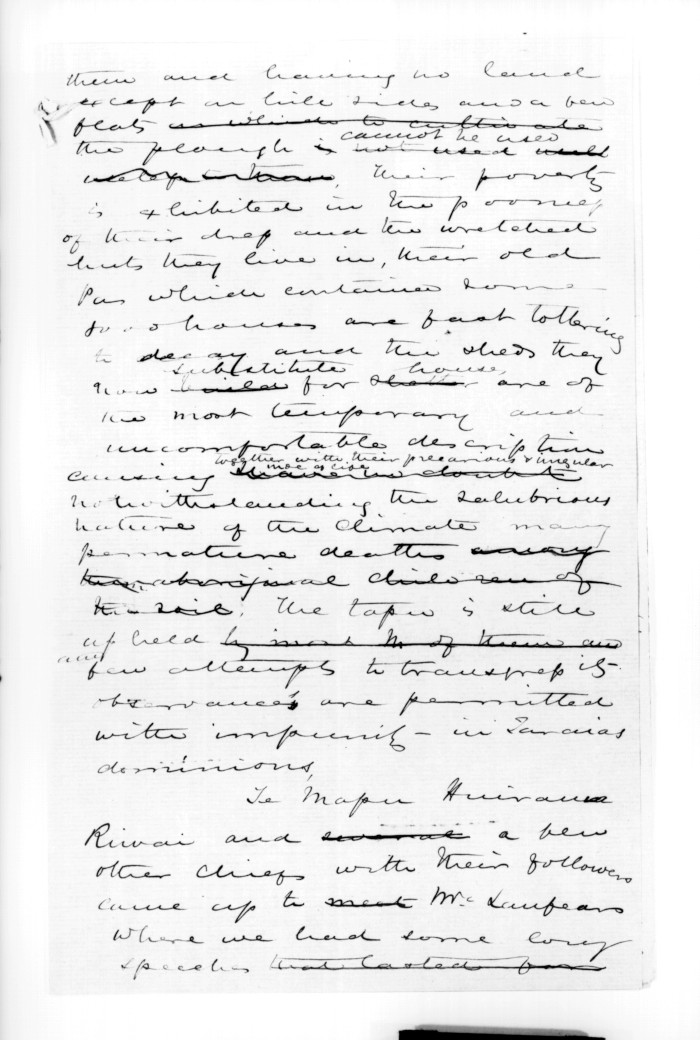 them and having no land
except on hill sides and a few
flats on which to cultivate
cannot be used
the plough is not used well
Their poverty
is exhibited in the pooness
of their dress and the wretched
huts they live in, their old
Pas which contained some
houses are fast tottering
to decay and the sheds they
substitute house,
now build for shelter are of
the most temporary and
uncomfortable description
together with their precarious & irregular
causing
notwithstanding the salubrious
nature of the Climate many
permature deaths among
their aboriginal children of
the soil. The tapu is still
upheld by most of them and
any
few attempts to transgress its
observances are permitted
with impunity in Taraias
dominions,
Te Mapu Huirama
Riwai and several a few
other chiefs with their followers
came up to meet Mr Lanfears
where we had some long
speeches that lasted for